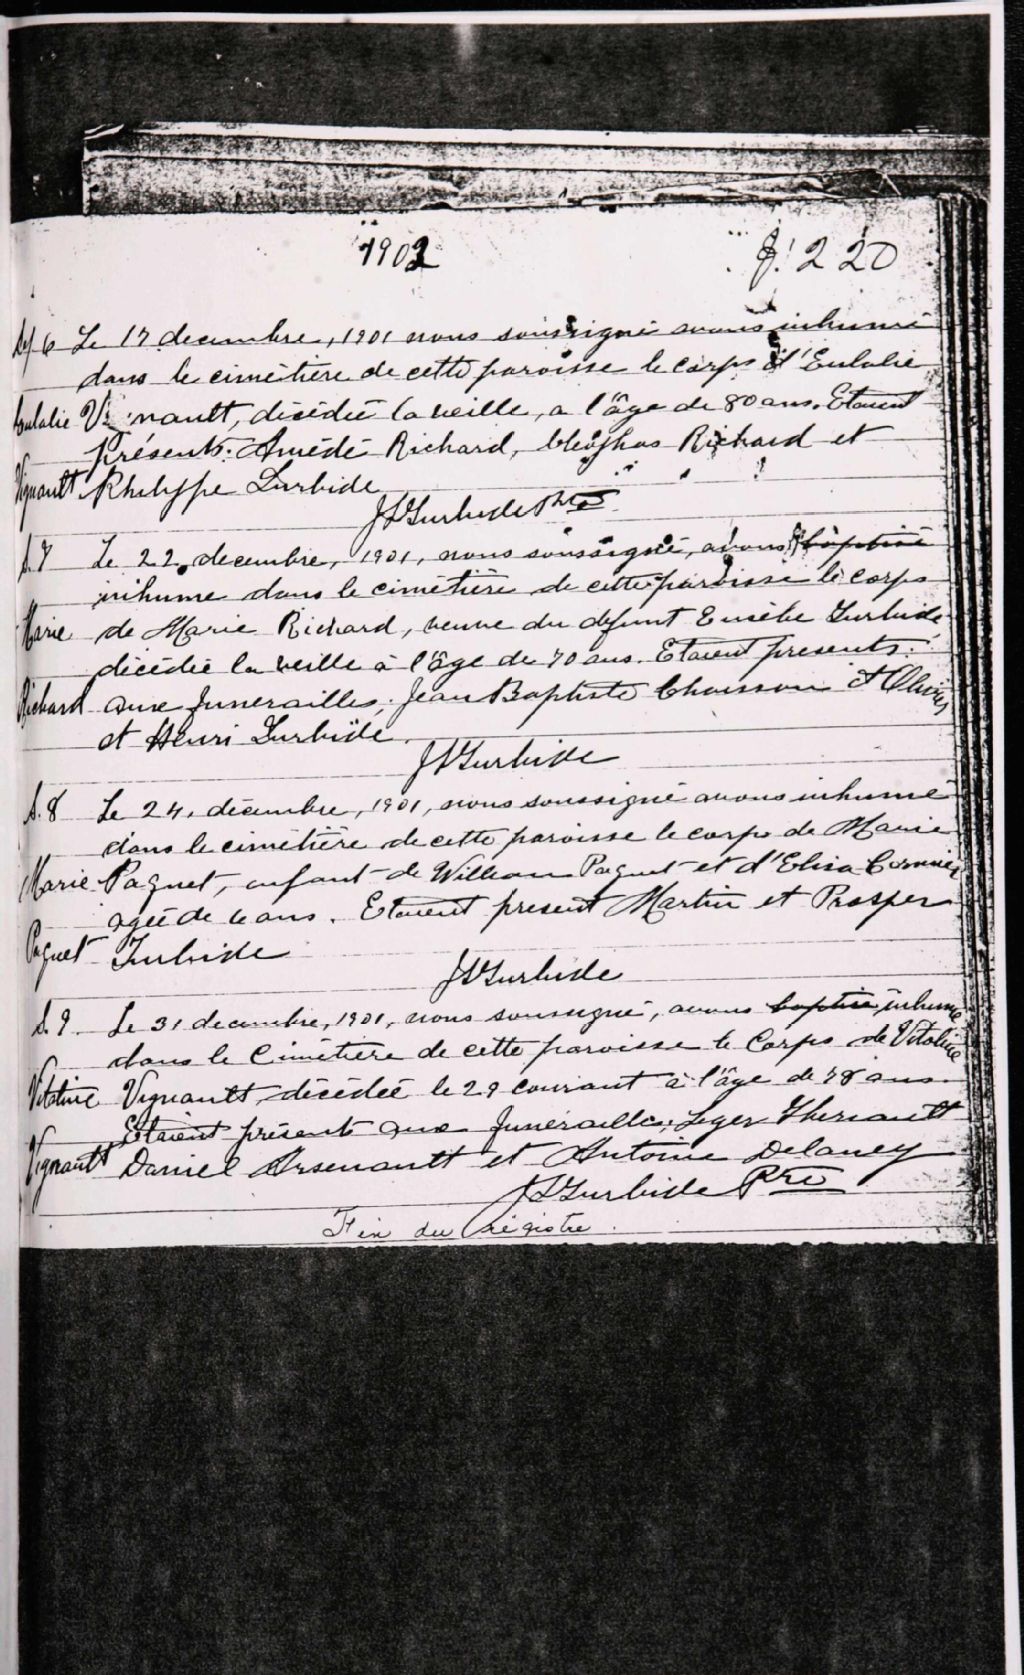 1902
f. 220
S. 6 Le 17 decembre, 1901 nous soussigné avons inhumé
dans le cimétière de cette paroisse le corps d'Eulalie
Eulalie Vi nault, décédée la veille, a l'âge de 80 ans. Etaient
Présents: Amédé Richard, Cléophas Richard et
Vignault Philippe Turbide
JSTurbide Ptre
S. 7 Le 22 decembre, 1901, nous soussigné, avons baptisé
inhume dans le cimétière de cette paroisse le corps
Marie de Marie Richard, veuve du défunt Eusèbe Turbide
décédée la veille à l'âge de 70 ans. Etaient presents
Richard aux funerailles, Jean Baptiste Chiasson Olivier
et Henri Turbide
JSTurbide
S. 8 Le 24, décembre, 1901, nous soussigné avons inhumé
dans le cimétière de cette paroisse le corps de Marie
Marie Paquet, enfant de William Paquet et d'Elisa Cormier
agée de ans. Etaient present Martin et Prosper
Paquet Turbide
JSTurbide
S. 9 Le 31 decembre, 1901, nous soussigné, avons baptisé inhumé
dans le Cimétière de cette paroisse le Corps de Vitaline
Vitaline Vignault, décédée le 29 courant à l'âge de 78 ans.
Etaient présents aux funérailles, Leger Theriault
Vignault Daniel Arsenault et Antoine Delaney
JSTurbide Ptre
Fin du régistre.